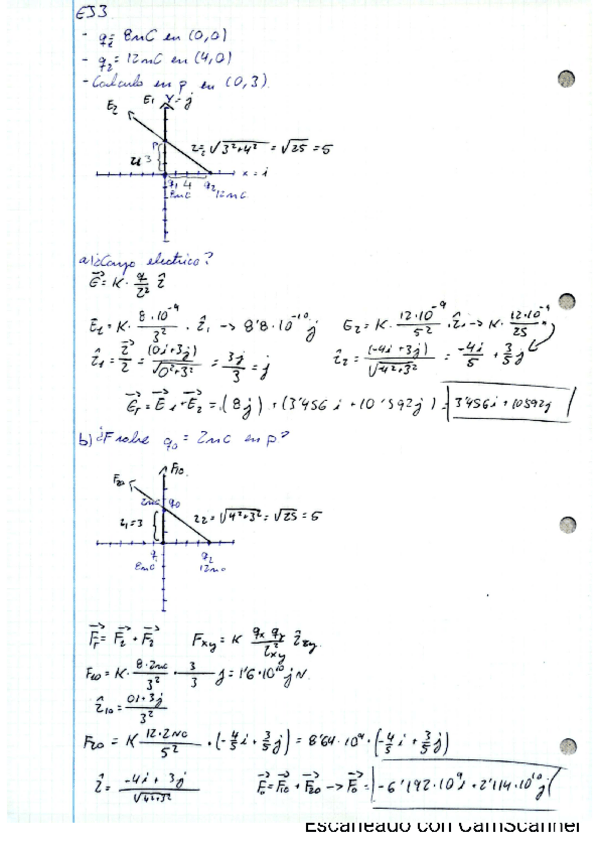 EJ3
- q₁= 8nC en (0,0)
- q₂= 12nC en (4,0)
- Calculo en p en (0,3)
E₂ E₁ Y=j
P r₂= √3²+4² = √25 = 5
3
x=i
q₁ 4 q₂
8nC 12nC
a) ¿Campo electrico?
E = K · q/r² r̂
E₁= K · 8·10⁻⁹/3² · r̂₁ -> 8'8·10⁻¹⁰ j E₂ = K · 12·10⁻⁹/5² · r̂₂ -> K · 12·10⁻⁹/25
r̂₁ = r/r = (0i+3j)/√0²+3² = 3j/3 = j r̂₂ = (-4i+3j)/√-4²+3² = -4i/5 + 3/5 j
Eᵣ = E₁+E₂ = (8j) + (3'456i + 10'592j) = 3'456i + 10592j
b) ¿F sobre q₀ = 2nC en p?
F₂₀ F₁₀
2nC q₀
r₁=3 r₂ = √4²+3² = √25 = 5
q₁ q₂
8nC 12nC
Fᵣ = F₁ + F₂ Fxy = K qx qy/r²xy r̂xy
F₁₀ = K · 8·2nC/3² · 3/3 j = 1'6·10¹⁰ j N
r̂₁₀ = 0i+3j/3²
F₂₀ = K 12·2nC/5² · (-4/5 i + 3/5 j) = 8'64·10⁹ · (-4/5 i + 3/5 j)
r̂ = -4i + 3j/√4²+3² F₀ = F₁₀ + F₂₀ -> F₀ = -6'192·10⁹ i + 2'114·10¹⁰ j
Escaneado con CamScanner